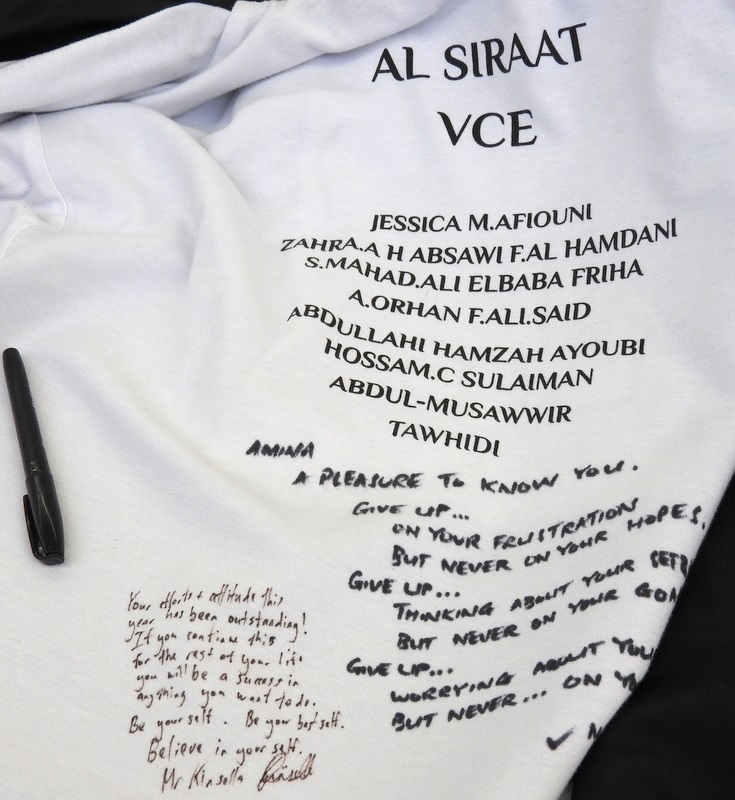 AL SIRAAT
VCE
JESSICA M.AFIOUNI
ZAHRA.A H ABSAWI F.AL HAMDANI
S.MAHAD.ALI ELBABA FRIHA
A.ORHAN F.ALI.SAID
ABDULLAHI HAMZAH AYOUBI
HOSSAM.C SULAIMAN
ABDUL-MUSAWWIR
TAWHIDI
AMINA
A PLEASURE TO KNOW YOU.
GIVE UP...
ON YOUR FRUSTRATION
BUT NEVER ON YOUR HOPES.
GIVE UP...
THINKING ABOUT YOUR
BUT NEVER ON YOUR
GIVE UP...
WORRYING ABOUT
BUT NEVER... ON
Your efforts + attitude this
year has been outstanding!
If you continue this
for the rest of your life
you will be a success in
anything you want to do.
Be yourself. Be your best self.
Believe in your self.
Mr Kinsella